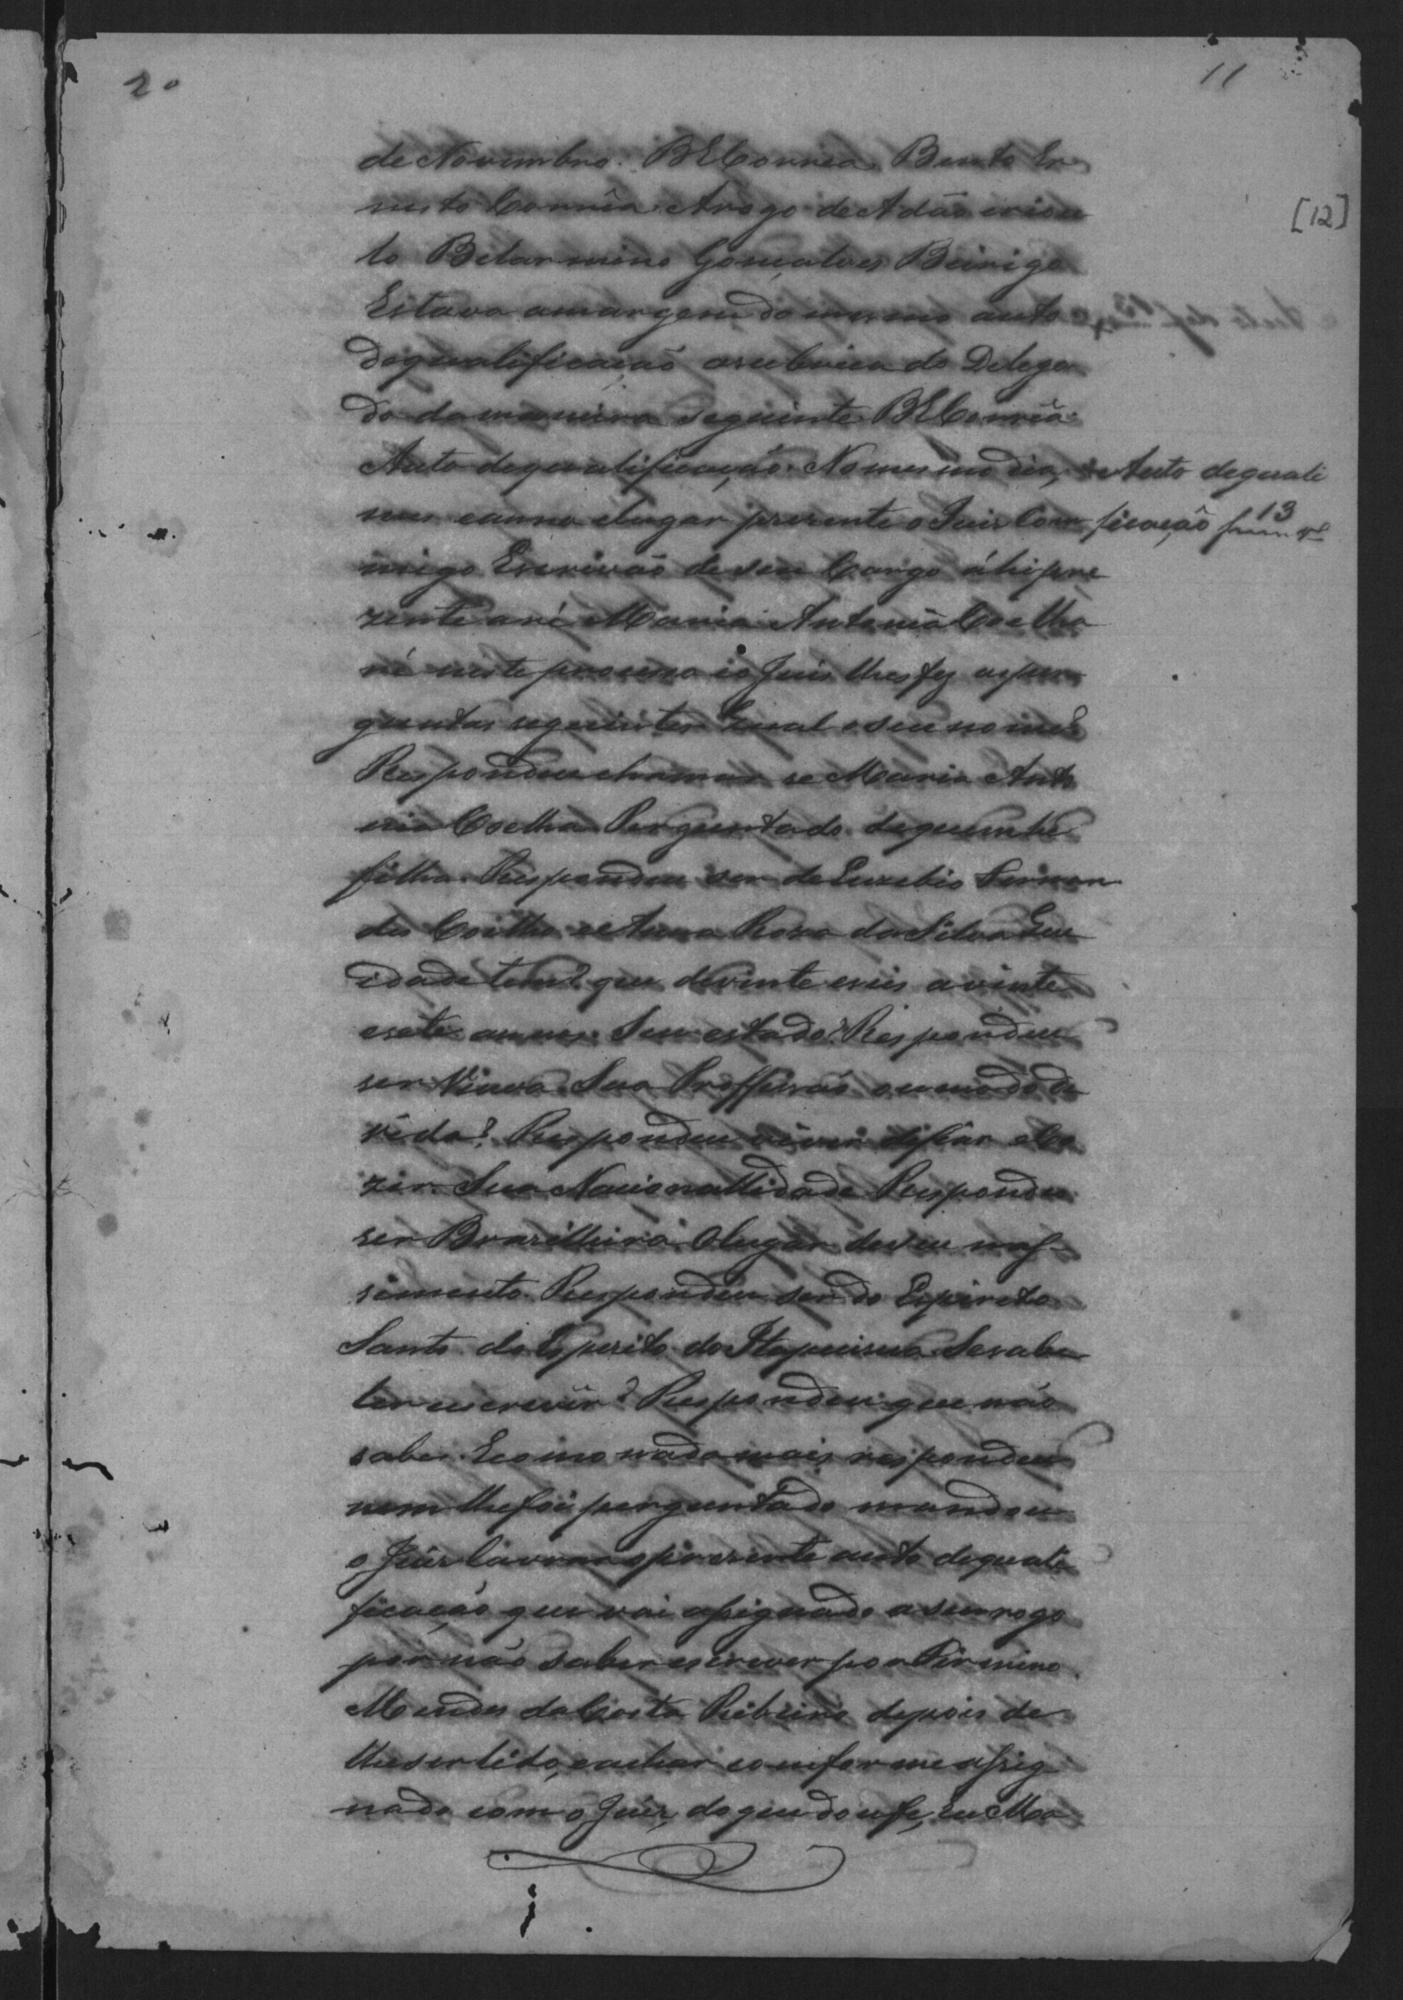 20
11
[12]
de Novembro. BECorrea. Bento Er
nesto Corrêa. Arogo de Adão criou
lo Belarmino Gonçalves Beirigo
Estava amargem do mesmo auto
de qualificação arubrica do Delega
do da maneira seguinte BECorrêa.
Auto dequalificação. No mesmo dia,
mes eanno elugar presente o Juiz Com
migo Escrivão de seu Cargo áhi pre
zente aré Maria Antonia Coelha
ré neste processo eo Juis lhes fez asper
guntas seguintes Qual o seu nome?
Respondeu chamar se Maria Anto
nia Coelha. Perguntado dequem he
filha. Respondeu ser de Euzebio Fernan
des Coelho e Anna Roza da Silva Que
idade tem? que devinte eseis avinte
esete annos. Seu estado? Respondeu
ser Viuva. Sua Proffissão oumodo de
vida? Respondeu viver defiar eCo
zer. Sua Nacionallidade Respondeu
ser Brazilleira. Olugar deseu nas-
simento. Respondeu ser do Espirito
Santo do Espirito do Itapucirica Sesabe
ler eescrevêr? Respondeu que não
sabe. Ecomo nada mais respondeu
nem lhefoi perguntado mandou
o Juiz lavrar opresente auto dequali
ficação que vai assignado aseurogo
pornão saber escrever por Firmino
Mendes da Costa Ribeiro depois de
lheserlido, eachar conforme assig
nado com o Juiz, doque doufe, Eu Ma
Auto dequali
ficação 13